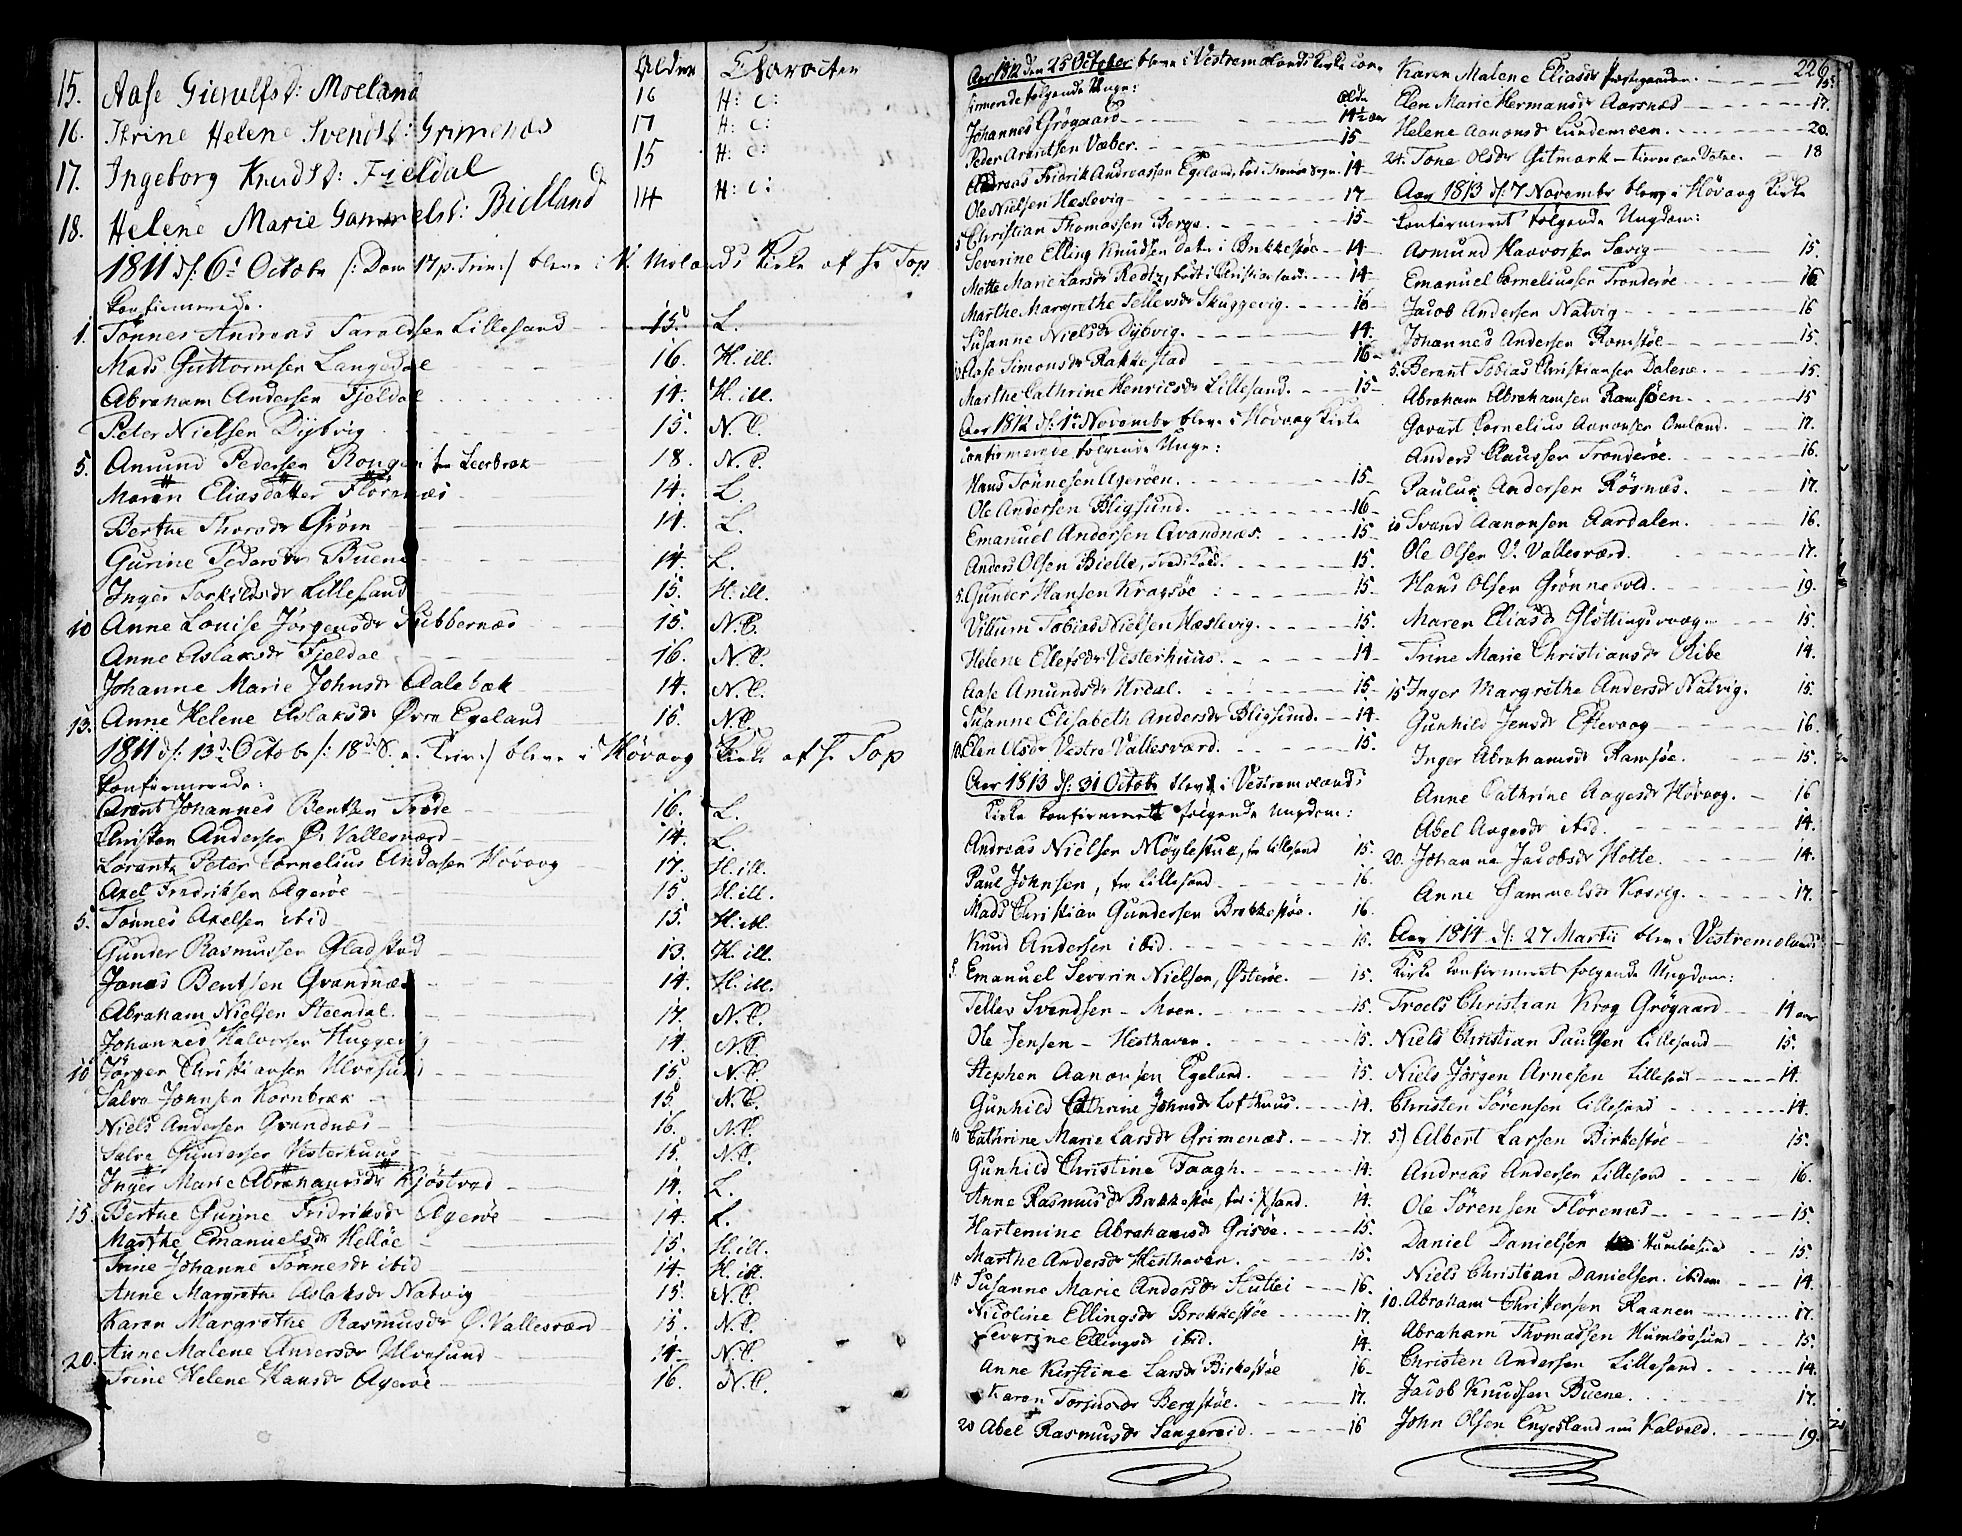 Alder Character
15. Aase Gierulfsd: Moeland 16 H: C:
16. Trine Helene Svendsd: Grimenæs 17 H: C:
17. Ingeborg Knudsd: Fjeldal 15 H: C:
18. Helene Marie Gammelsd: Bielland 14 H: C:
1811 d: 6te Octobr /: Dom 17 p. Trin :/ bleve i V. Molands Kirke af Hr Top
konfirmerede.
1. Tønnes Andreas Taraldsen Lillesand 15. L.
Mads Guttormsen Langedal 16. H. ill.
Abraham Andersen Fjeldal 14. H. ill.
Peter Nielsen Dybvig 15. N. C.
5. Amund Pedersen Leerbræk 18. N. C.
Maren Eliasdatter Florenæs 14. L.
Berthe Thorsdr Grøm 14. L.
Gurine Pedersdr Buene 14. L.
Inger Torkildsdr Lillesand 15. H. ill.
10 Anne Louise Jørgensdr Kubbernæs 15. N. C.
Anne Aslaksdr Fjeldal 16. N. C.
Johanne Marie Johnsdr Aalebæk 14. N. C.
13. Anne Helene Aslaksdr Øvre Egeland 16. N. C.
1811 d: 13de Octobr /: 18de S. p. Trin :/ bleve i Høvaag Kirke af Hr Top
konfirmerede:
Arent Johannes Bentsen Trøe 16. L.
Christen Andersen Ø. Vallesværd 14. L.
Lorents Peter Cornelius Andersen Høvaag 17. H. ill.
Axel Fredriksen Agerøe 15. H. ill.
5. Tønnes Axelsen ibid 15. H. ill.
Gunder Rasmussen Gladstad 13. H. ill.
Jonas Bentsen Qvandnæs 14. H. ill.
Abraham Nielsen Steendal. 17. N. C.
Johannes Halvorsen Huggevig 14. N. C.
10 Jørgen Christiansen Ulvøsund 15. N. C.
Salve Johnsen Kornbræk 15. N. C.
Niels Andersen Qvandnæs 16. N. C.
Salve Gundersen Vesterhuus 15. N. C.
Inger Marie Abrahamsdr Kjøstvad 14. L.
15. Berthe Gurine Fridriksdr Agerøe 14. L.
Marthe Emanuelsdr Helløe 15. H. ill.
Trine Johanne Tønnesdr ibid 14. H. ill.
Anne Margrethe Aslaksdr Natvig 15. N. C.
Karen Margrethe Rasmusdr Ø. Vallesværd 15. N. C.
20. Anne Malene Andersdr Ulvøsund 14. N. C.
Trine Helene Hansdr Agerøe 16. N. C.
Aar 1812 den 25 October bleve i Vestremolands Kirke con-
firmerede følgende Unge: Alder
Johannes Grøgaard 14½ aar
Peder Arentsen Væber. 15
Andreas Fridrik Andreassen Egeland, 14
Ole Nielsen Hæslevig 17
5 Christian Thomassen Berge. 15
Severine Elling Knudsen datr i Brekkestøe 14
Mette Marie Larsdr Redtz, født i Christiansand. 14
Marthe Margrethe Tellevsdr Skuggevig. 16
Susanne Nielsdr Dybvig. 14.
10. Aase Simonsdr Rakkestad 16
Marthe Cathrine Henricsdr Lillesand. 15
Aar 1812 d: 1te Novembr bleve i Høvaag Kirke
confirmerede følgende Unge:
Hans Tønnesen Agerøen. 15
Ole Andersen Bligsund. 16
Emanuel Andersen Qvandnæs. 15
Anders Olsen Bielle, 15.
5. Gunder Hansen Kragsøe 15
Villum Tobias Nielsen Hæslevig. 15.
Helene Ellefsdr Vesterhuus. 14
Aase Amundsdr Urdal. 15
Susanne Elisabeth Andersdr Bligsund. 14
10. Elen Olsdr Vestre Vallesværd. 15.
Aar 1813 d: 31 Octobr blev i Vestremolands
Kirke konfirmeret følgende Ungdom:
Andreas Nielsen Møglestue, fr Lillesand 15.
Paul Johnsen, fr Lillesand 16.
Mads Christian Gundersen Brekkestøe. 16.
Knud Andersen ibid. 15.
5. Emanuel Severin Nielsen, Østerøe. 15.
Tellev Svendsen - Moen. 15.
Ole Jensen - Hesthaven. 15.
Stephen Aanonsen Egeland. 15.
Gunhild Cathrine Johnsdr Lofthuus. 14.
10 Cathrine Marie Larsdr Grimenæs. 17.
Gunhild Christine Faagh. 14.
Anne Rasmusdr Brekkestøe, fød i Xsand. 14.
Hartemine Abrahamsdr Grisøe. 15.
Marthe Andersdr Hesthaven. 15.
15 Susanne Marie Andersdr Stuttei 16.
Nicoline Ellingsdr Brekkestøe 17.
Severine Ellingsdr ibid. 14.
Anne Kirstine Larsdr Birkestøe 16
Karen Torjusdr Bergstøe. 17.
20 Abel Rasmusdr Sangereid. 16
226
Karen Malene Eliasdr Præstegaarden. 15.
Elen Marie Hermansdr Aarsnæs 17.
Helene Aanonsdr Lundemoen. 20.
24. Tone Olsdr Gitmark 18
Aar 1813 d: 7 Novembr blev i Høvaag Kirke
konfirmeret følgende Ungdom:
Asmund Haavorsen Sævig 15.
Emanuel Corneliussen Trønderøe 16
Jacob Andersen Natvig 16
Johannes Andersen Romstøe 15.
5. Berent Tobias Christiansen Dalene. 15.
Abraham Abrahamsen Ramsøen. 15
Govart Cornelius Aanonsen Omland. 17.
Anders Claussen Trønderøe. 16.
Paulus Andersen Røsnæs. 17.
10 Svend Aanonsen Aardalen. 16.
Ole Olsen V. Vallesværd. 17.
Hans Olsen Grønnevold. 19.
Maren Eliasdr Gløttingsvaag. 15.
Trine Marie Christiansdr Ribe 14.
15 Inger Margrethe Andersdr Natvig. 15.
Gunhild Jensdr Eftevaag 16.
Inger Abrahamsdr Ramsøe. 15.
Anne Cathrine Aagesdr Høvaag. 16
Abel Aagesdr ibid. 14.
20. Johanne Jacobsdr Holte. 14.
Anne Gammelsdr Kosvig. 17.
Aar 1814 d: 27 Martii blev i Vestremolands
Kirke konfirmeret følgende Ungdom:
Troels Christian Krog Grøgaard 14 aar
Niels Christian Paulsen Lillesand 15.
Niels Jørgen Arnesen Lillesand 14.
Christen Sørensen Lillesand 14.
5.) Albert Larsen Birkestøe 15.
Andreas Andersen Lillesand 16.
Ole Sørensen Florenæs 15.
Daniel Danielsen Humløesund 15
Niels Christian Danielsen. ibidem 14.
10. Abraham Christensen Kaanen 17.
Abraham Thomassen Humløsund 15.
Christen Andersen Lillesand. 14.
Jacob Knudsen Buene. 17.
John Olsen Engesland nu Kalvold. 19.